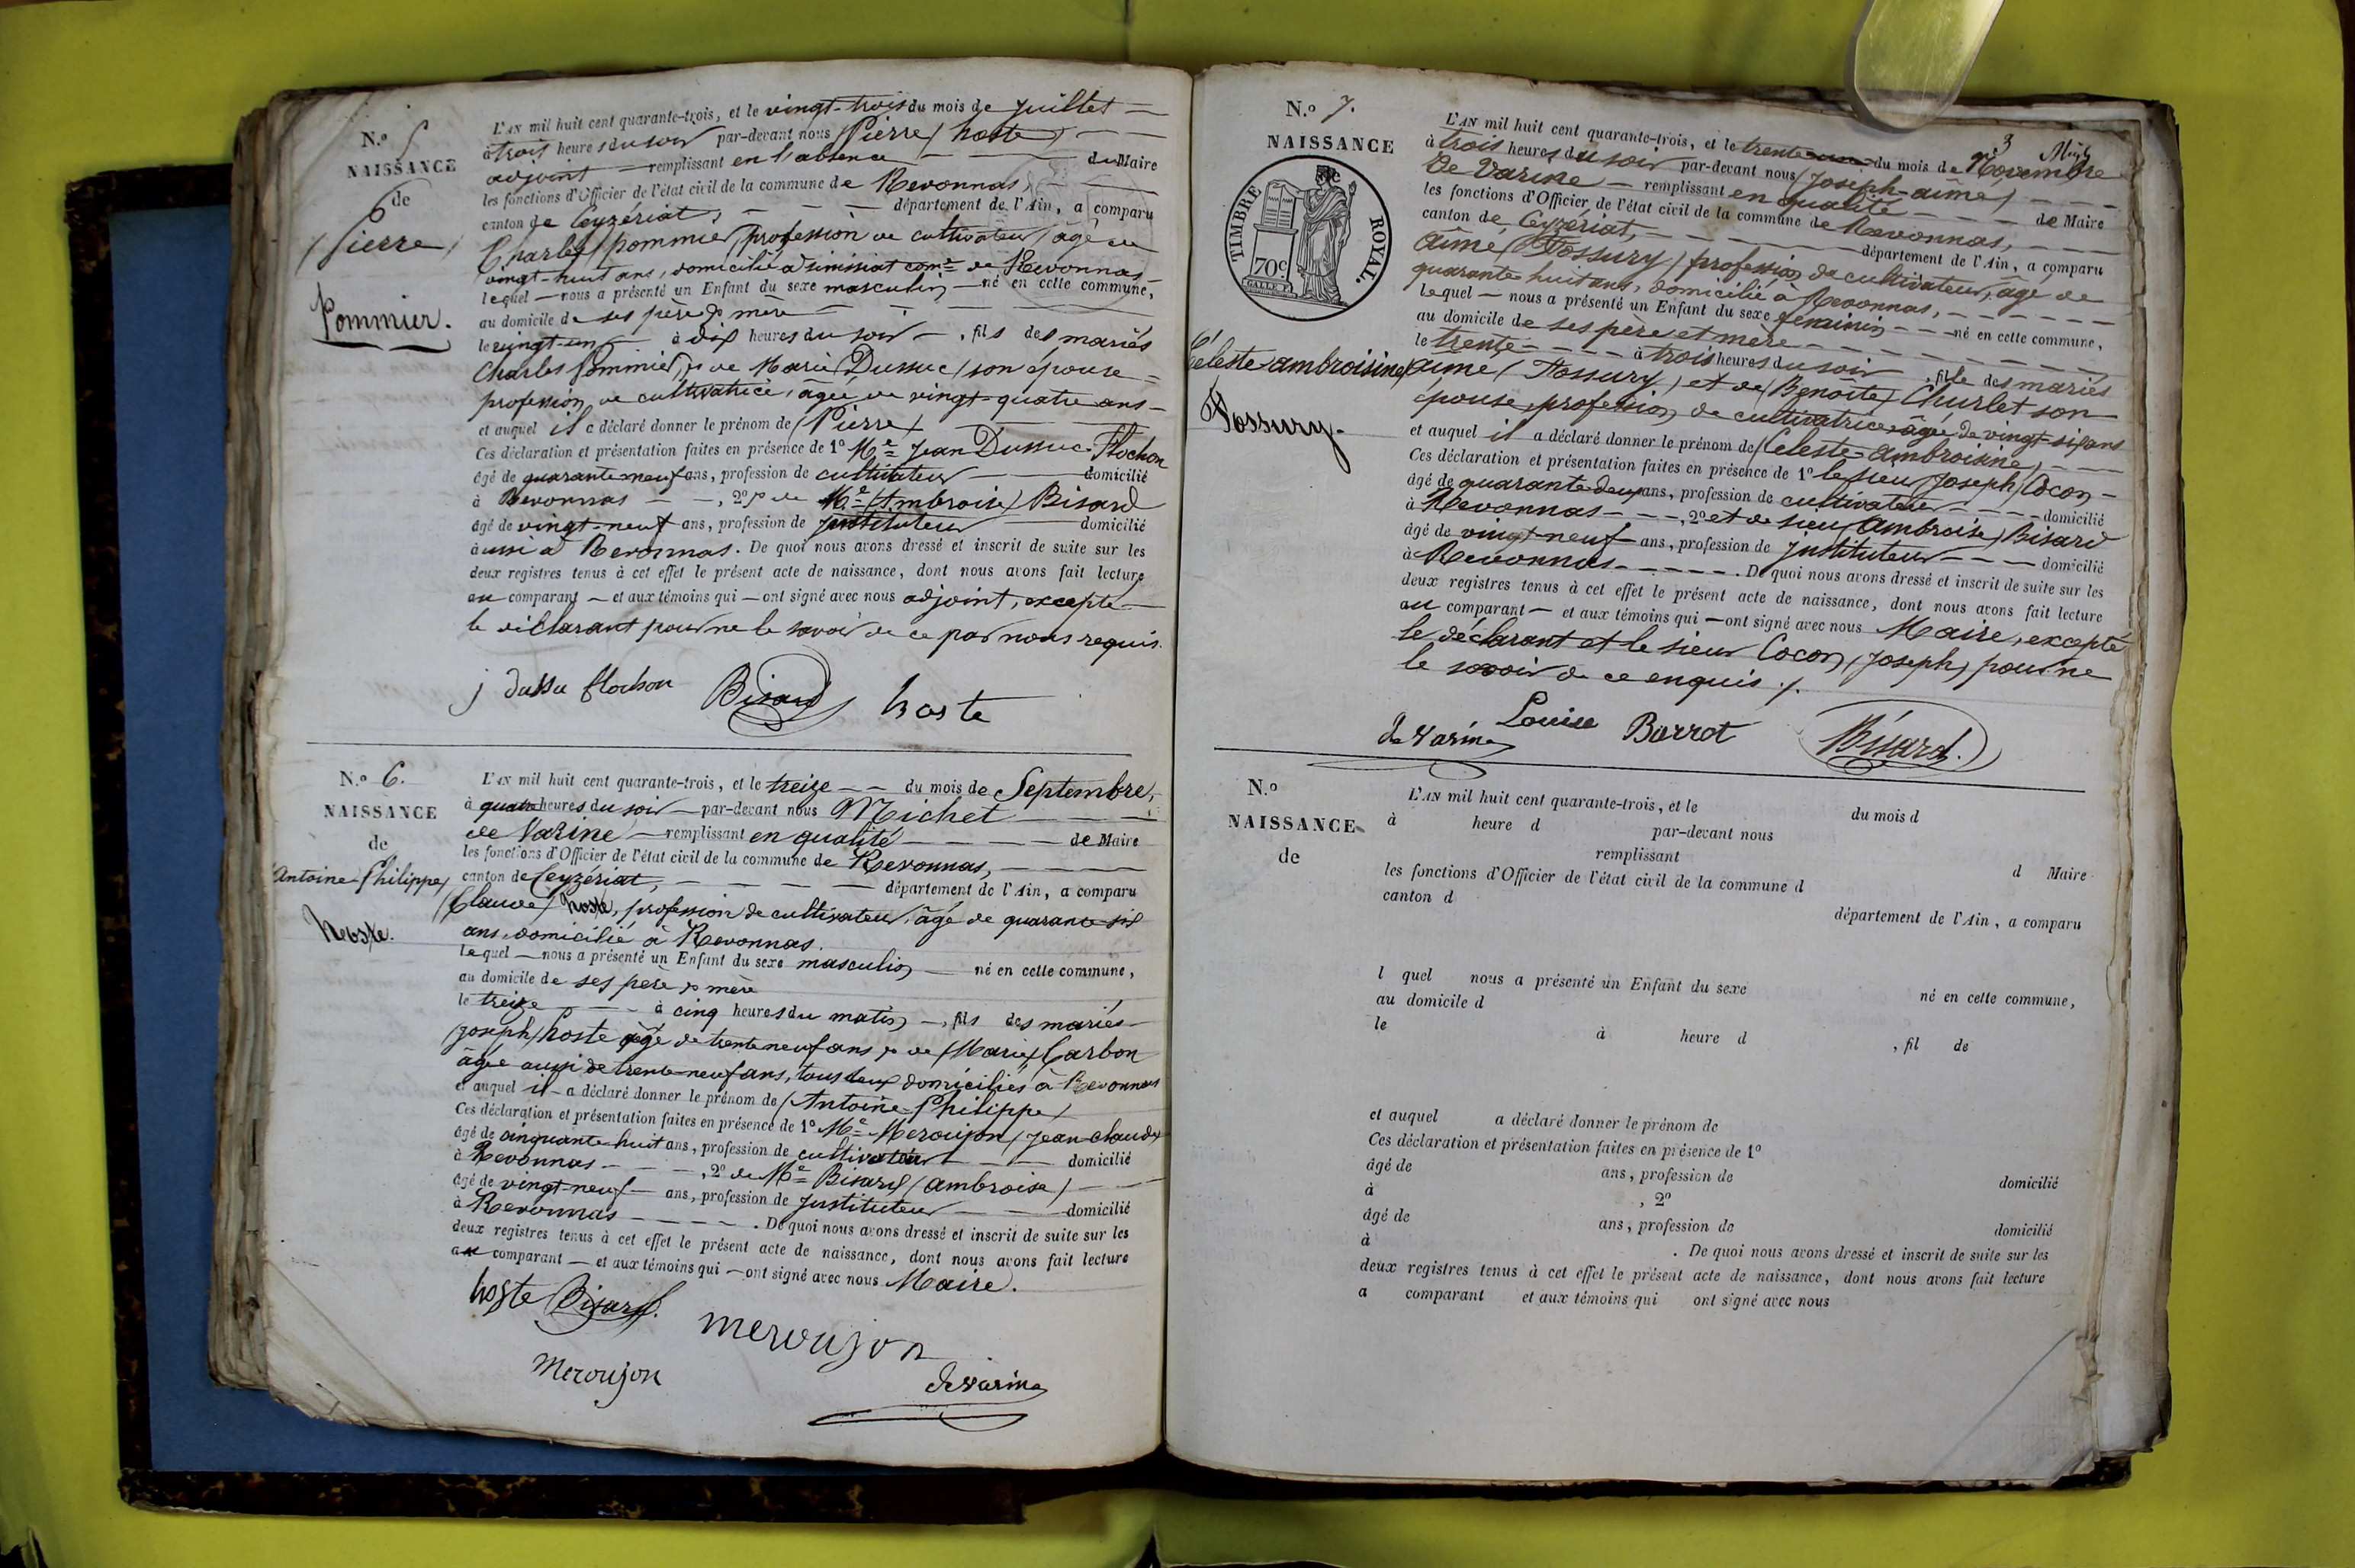 N.o 5
NAISSANCE
de
Pierre
Pommier.
L'AN mil huit cent quarante-trois, et le vingt-trois du mois de Juillet
à trois heures du soir par-devant nous (Pierre) hoste
adjoint remplissant en l'absence du Maire
les fonctions d'Officier de l'état civil de la commune de Revonnas,
canton de Ceyzériat, département de l'Ain, a comparu
Charles Pommier, profession de cultivateur, âgé de
vingt-huit ans, domicilié à Simisiat com.ne de Revonnas
lequel nous a présenté un Enfant du sexe masculin né en cette commune,
au domicile de ses père & mère
le vingt-un à dix heures du soir, fils des mariés
Charles Pommier, & de Marie Dussuc son épouse
profession de cultivatrice, âgée de vingt-quatre ans
et auquel il a déclaré donner le prénom de (Pierre)
Ces déclaration et présentation faites en présence de 1º Me Jean Dussuc-Flochon
âgé de quarante-neuf ans, profession de cultivateur domicilié
à Revonnas, 2º & de Me (Ambroise) Bisard
âgé de vingt-neuf ans, profession de Instituteur domicilié
aussi à Revonnas. De quoi nous avons dressé et inscrit de suite sur les
deux registres tenus à cet effet le présent acte de naissance, dont nous avons fait lecture
au comparant et aux témoins qui ont signé avec nous adjoint, excepté
le déclarant pour ne le savoir de ce par nous requis.
j dussu flochon Bisard hoste
N.o 6.
NAISSANCE
de
Antoine-Philippe
hoste.
L'AN mil huit cent quarante-trois, et le treize du mois de Septembre,
à quatre heures du soir par-devant nous Michel
de Varine remplissant en qualité de Maire
les fonctions d'Officier de l'état civil de la commune de Revonnas,
canton de Ceyzériat, département de l'Ain, a comparu
(Claude) hoste, profession de cultivateur, âgé de quarante-six
ans domicilié à Revonnas.
lequel nous a présenté un Enfant du sexe masculin né en cette commune,
au domicile de ses père & mère
le treize à cinq heures du matin, fils des mariés
(Joseph) hoste âgé de trente neuf ans, & de (Marie) Carbon
âgée aussi de trente-neuf ans, tous deux domiciliés à Revonnas
et auquel il a déclaré donner le prénom de (Antoine-Philippe)
Ces déclaration et présentation faites en présence de 1º Me Meroujon (Jean-Claude)
âgé de cinquante-huit ans, profession de cultivateur domicilié
à Revonnas, 2º de Me Bisard (ambroise)
âgé de vingt-neuf ans, profession de Instituteur domicilié
à Revonnas. De quoi nous avons dressé et inscrit de suite sur les
deux registres tenus à cet effet le présent acte de naissance, dont nous avons fait lecture
au comparant et aux témoins qui ont signé avec nous Maire.
hoste Bisard.
meroujon
Meroujon
de varine
N.o 7.
NAISSANCE
TIMBRE ROYAL.
70c
Céleste-ambroisine
Fossury.
3
L'AN mil huit cent quarante-trois, et le trente du mois de Novembre
à trois heures du soir par-devant nous (Joseph-aimé)
De Varine remplissant en qualité de Maire
les fonctions d'Officier de l'état civil de la commune de Revonnas,
canton de Ceyzériat, département de l'Ain, a comparu
Aimé (Fossury) profession de cultivateur, âgé de
quarante huit ans, domicilié à Revonnas,
lequel nous a présenté un Enfant du sexe féminin né en cette commune,
au domicile de ses père et mère
le trente à trois heures du soir, fille des mariés
aimé (Fossury) et de (Benoîte) Churlet son
épouse, profession de cultivatrice âgée de vingt-six ans
et auquel il a déclaré donner le prénom de (Céleste-ambroisine)
Ces déclaration et présentation faites en présence de 1º le sieur Joseph Cocon
âgé de quarante deux ans, profession de cultivateur domicilié
à Revonnas, 2º et de sieur (ambroise) Bisard
âgé de vingt-neuf ans, profession de Instituteur domicilié
à Revonnas. De quoi nous avons dressé et inscrit de suite sur les
deux registres tenus à cet effet le présent acte de naissance, dont nous avons fait lecture
au comparant et aux témoins qui ont signé avec nous Maire, excepté
le déclarant et le sieur Cocon (Joseph) pour ne
le savoir de ce enquis ./.
de varine Louise Borrot Bisard.
N.o
NAISSANCE
de
L'AN mil huit cent quarante-trois, et le du mois d
à heure d par-devant nous
remplissant d Maire
les fonctions d'Officier de l'état civil de la commune d
canton d département de l'Ain, a comparu
l quel nous a présenté un Enfant du sexe né en cette commune,
au domicile d
le à heure d , fil de
et auquel a déclaré donner le prénom de
Ces déclaration et présentation faites en présence de 1º
âgé de ans, profession de domicilié
à , 2º
âgé de ans, profession de domicilié
à . De quoi nous avons dressé et inscrit de suite sur les
deux registres tenus à cet effet le présent acte de naissance, dont nous avons fait lecture
a comparant et aux témoins qui ont signé avec nous